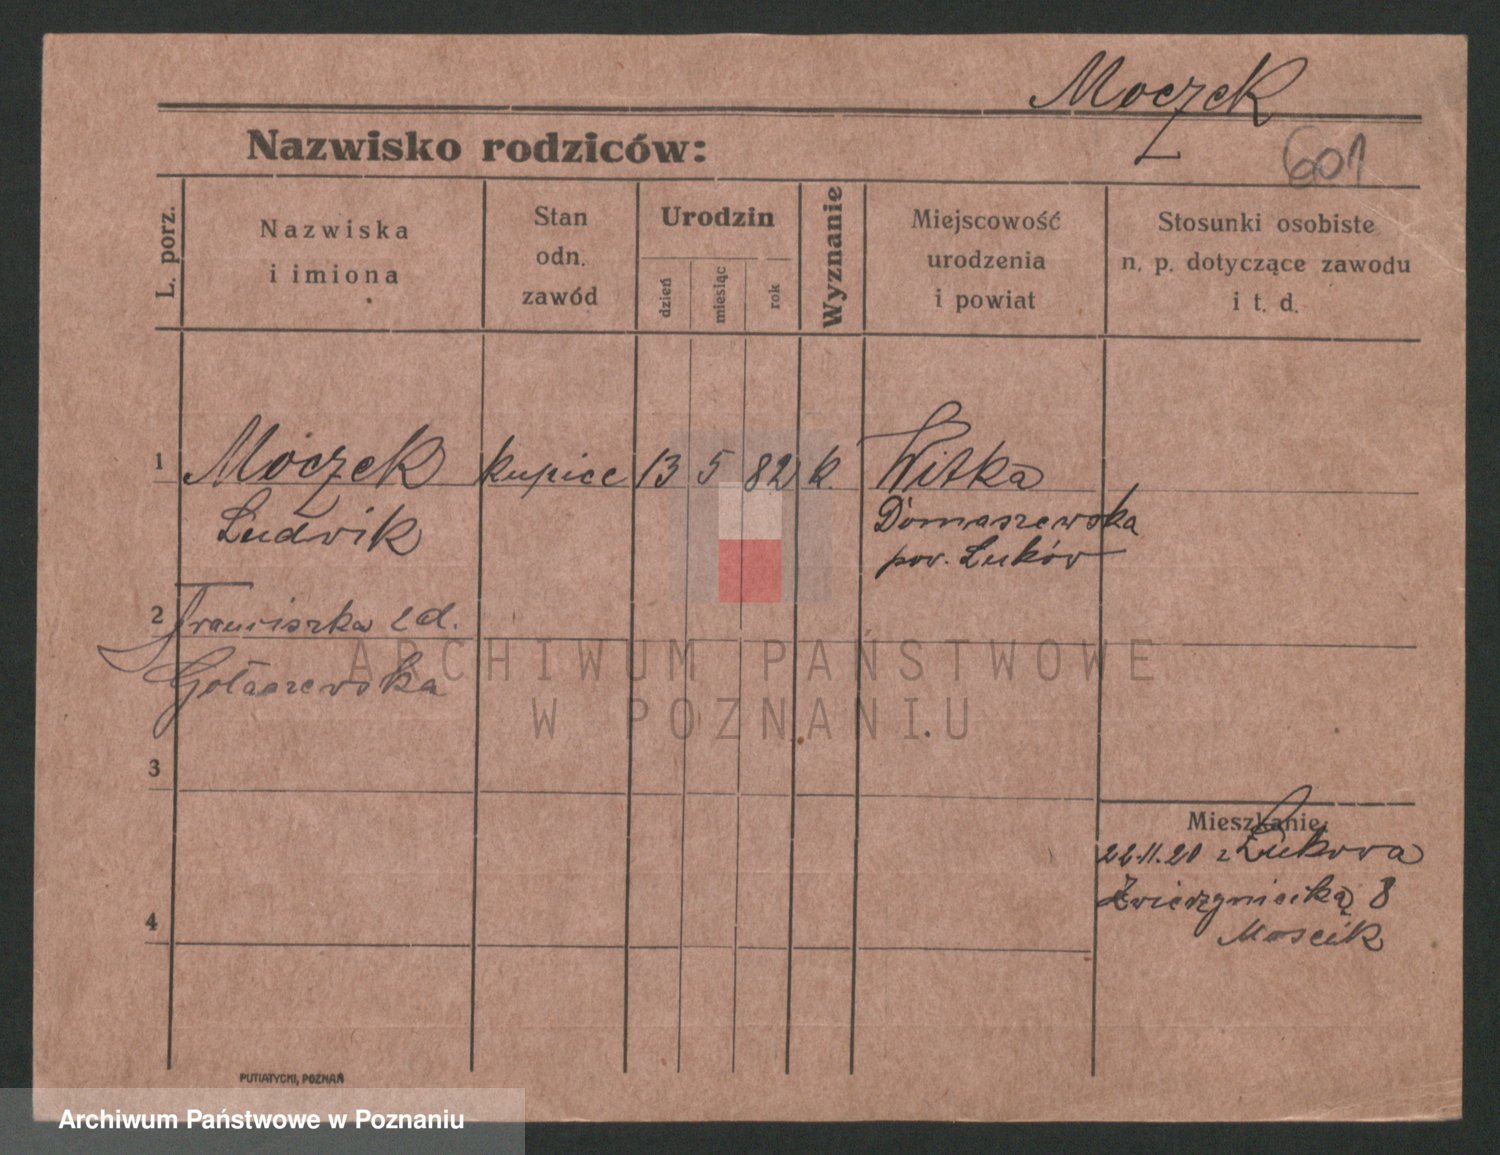 Moczek
601
Nazwisko rodziców:
L. porz.
Nazwiska
i imiona
Stan
odn.
zawód
Urodzin
dzień
miesiąc
rok
Wyznanie
Miejscowość
urodzenia
i powiat
Stosunki osobiste
n. p. dotyczące zawodu
i t. d.
1
Moczek
Ludwik
kupiec
13
5
82
k.
Witka
Domaszewska
pov. Łuków
2
Franciszka zd.
Gołaszewska
ARCHIWUM PAŃSTWOWE
W POZNANIU
3
Mieszkanie:
22.11.20 z Łukowa
Zwierzyniecką 8
4
PUTIATYCKI, POZNAŃ
Archiwum Państwowe w Poznaniu